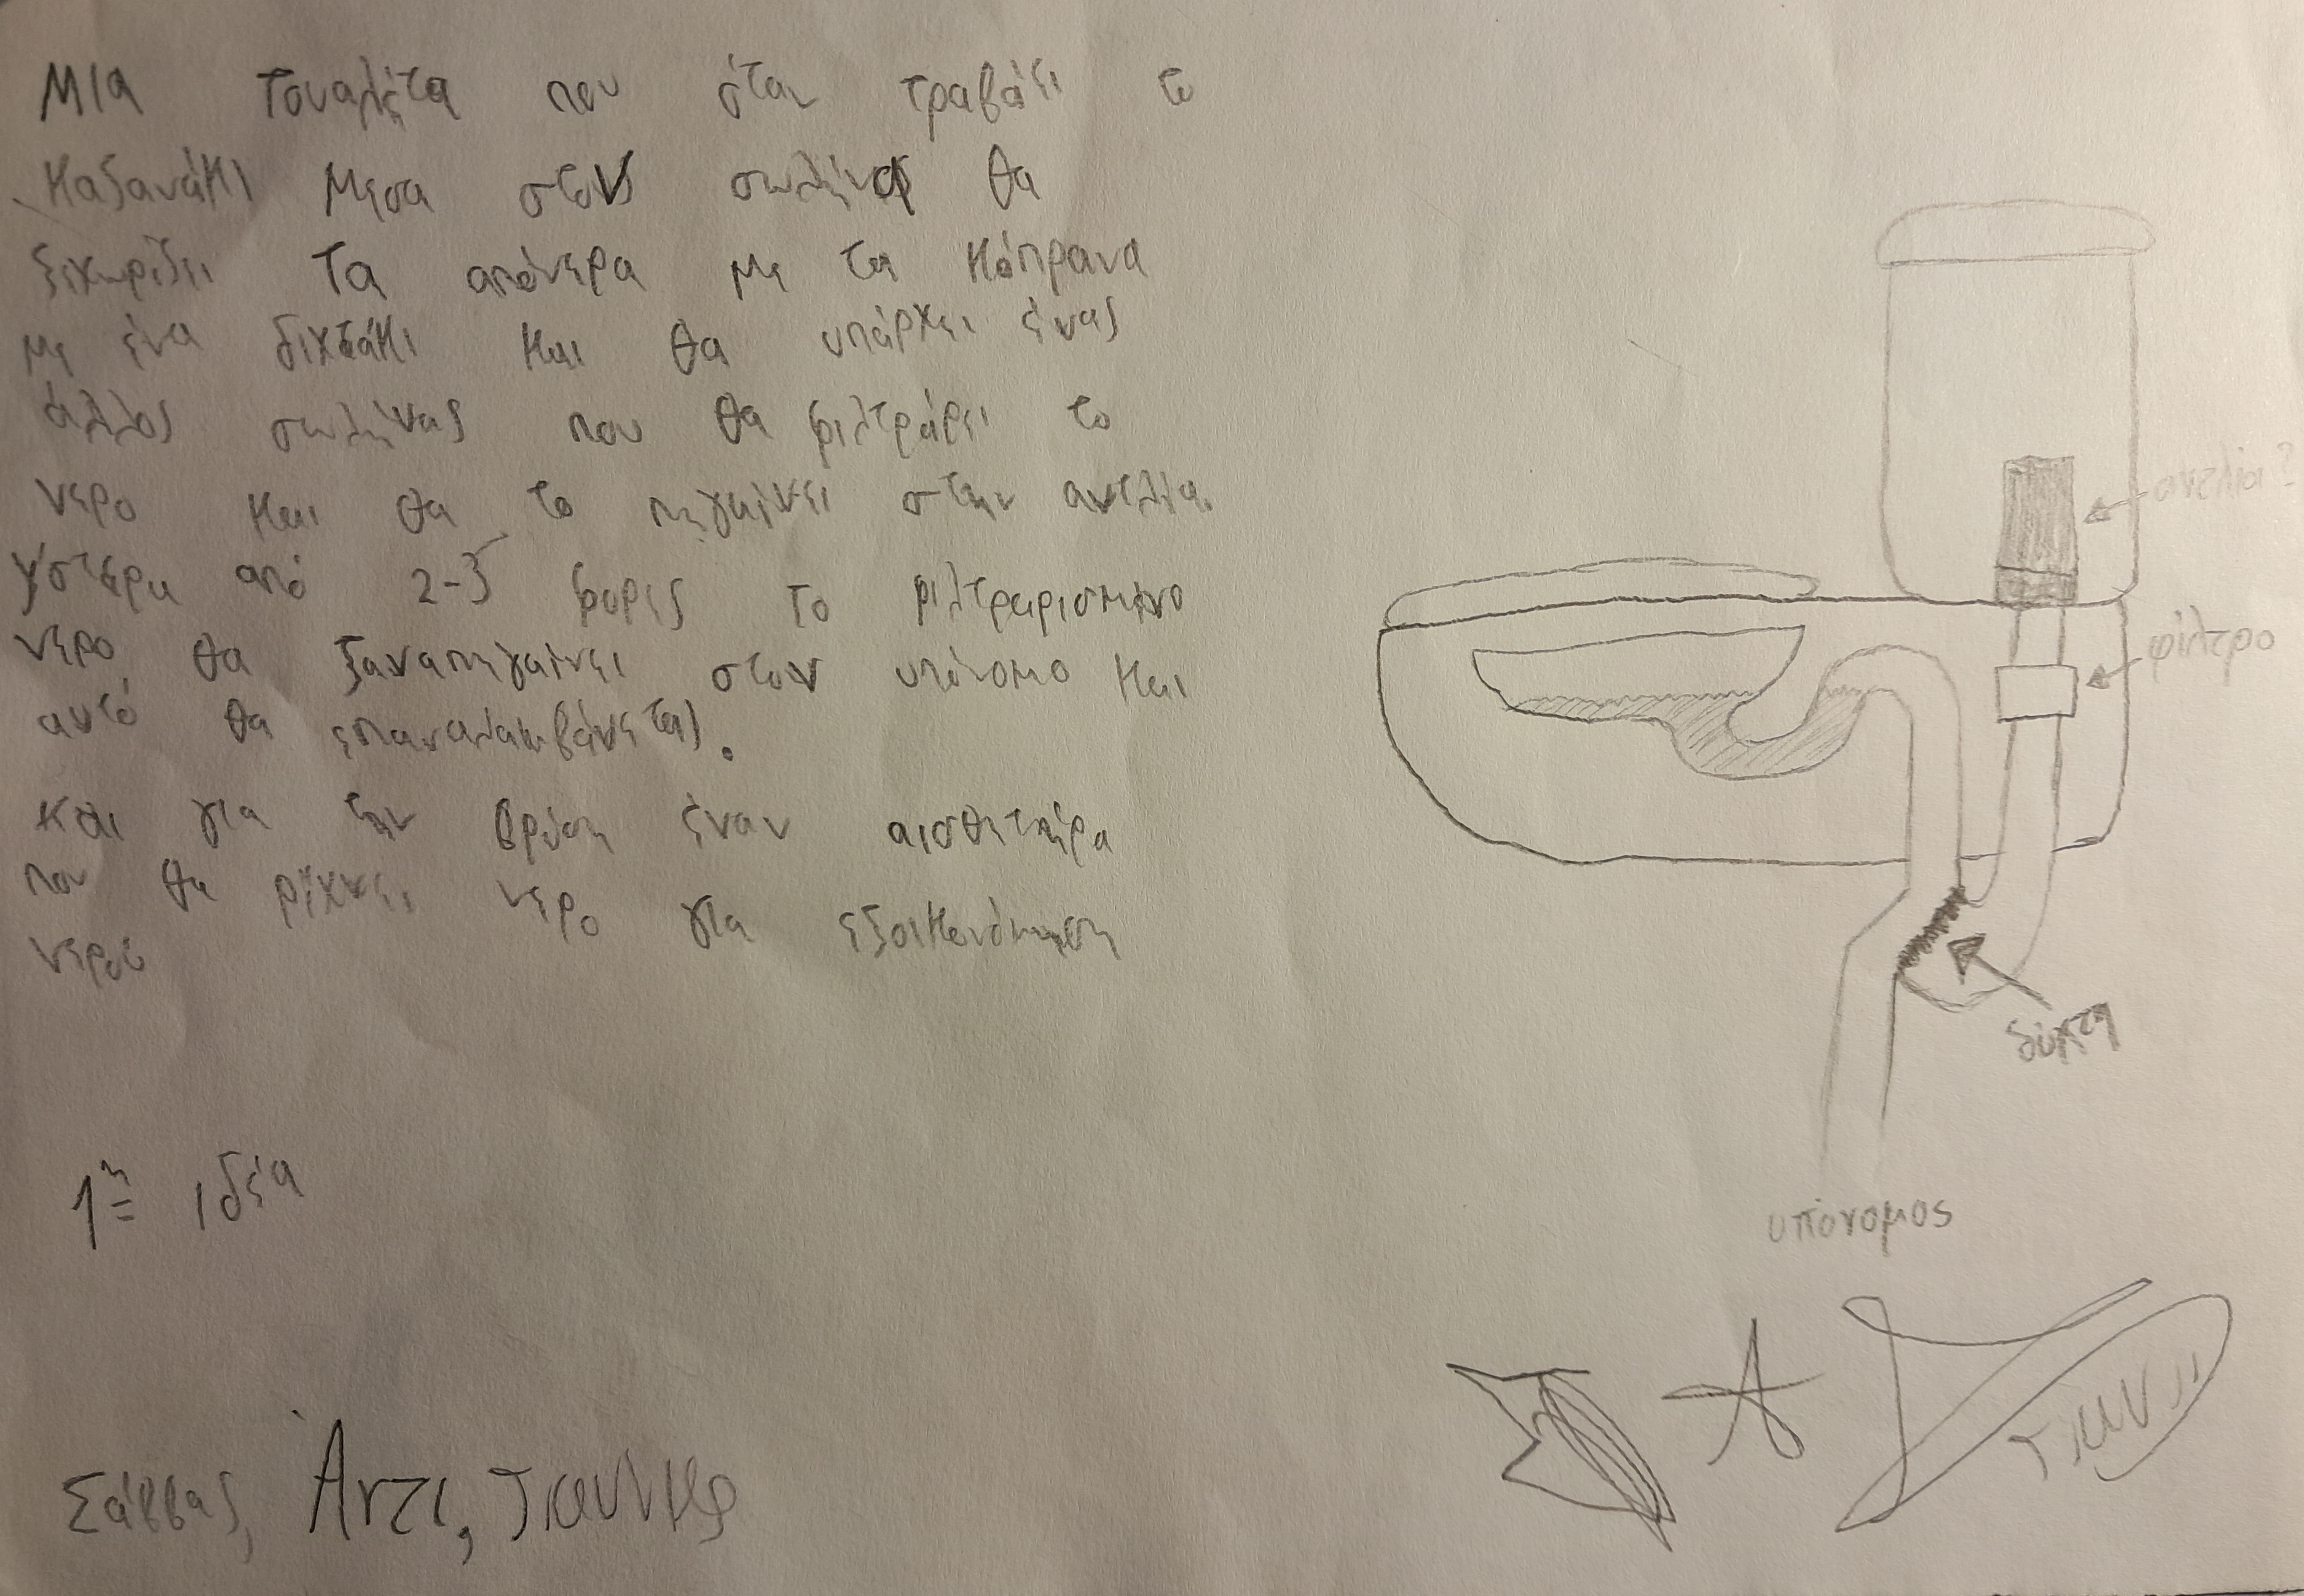 Μια τουαλέτα που όταν τραβάει το
καζανάκι μεσα στον σωλήνα θα
ξεχωρίζει τα απόνερα με τα κόπρανα
με ένα διχτάκι και θα υπάρχει ένας
άλλος σωλήνας που θα φιλτράρει το
νερο και θα το πηγαίνει στην αντλία.
Ύστερα από 2-3 φορές το φιλτραρισμένο
νερο θα ξαναπηγαίνει στον υπόνομο και
αυτό θα επαναλαμβάνεται.
Και για την βρύση έναν αισθητήρα
που θα ρίχνει νερο για εξοικονόμηση
νερού
1η ιδέα
Σάββας, Άντι,
αντλία?
φίλτρο
δίχτη
υπόνομος